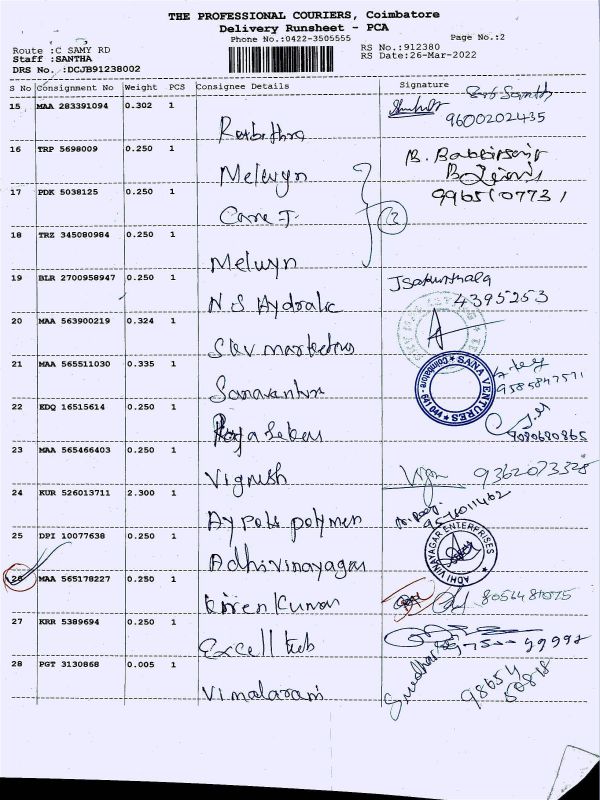 THE PROFESSIONAL COURIERS, Coimbatore
Delivery Runsheet - PCA
Phone No.:0422-3505555
Page No.:2
Route :C SAMY RD
RS No.:912380
Staff :SANTHA
RS Date:26-Mar-2022
DRS No. :DCJB91238002
S No Consignment No Weight PCS Consignee Details Signature
15 MAA 283391094 0.302 1
9600202435
16 TRP 5698009 0.250 1
Melwyn
17 PDK 5038125 0.250 1
9965107731
3
18 TRZ 345080984 0.250 1
Melwyn
19 BLR 2700958947 0.250 1
N S Hydralic
Jsakunthala
4395253
20 MAA 563900219 0.324 1
21 MAA 565511030 0.335 1
SANA VENTURES
Coimbatore - 641 044
9585847571
22 EDQ 16515614 0.250 1
Raja Sekar
9080680865
23 MAA 565466403 0.250 1
Vignesh
9362073328
24 KUR 526013711 2.300 1
polymer
25 DPI 10077638 0.250 1
Adhivinayagar
ADHI VINAYAGAR ENTERPRISES
26 MAA 565178227 0.250 1
Kiren Kumar
27 KRR 5389694 0.250 1
Excell tub
28 PGT 3130868 0.005 1
Vimalarani
Sreedhar
98654
50818